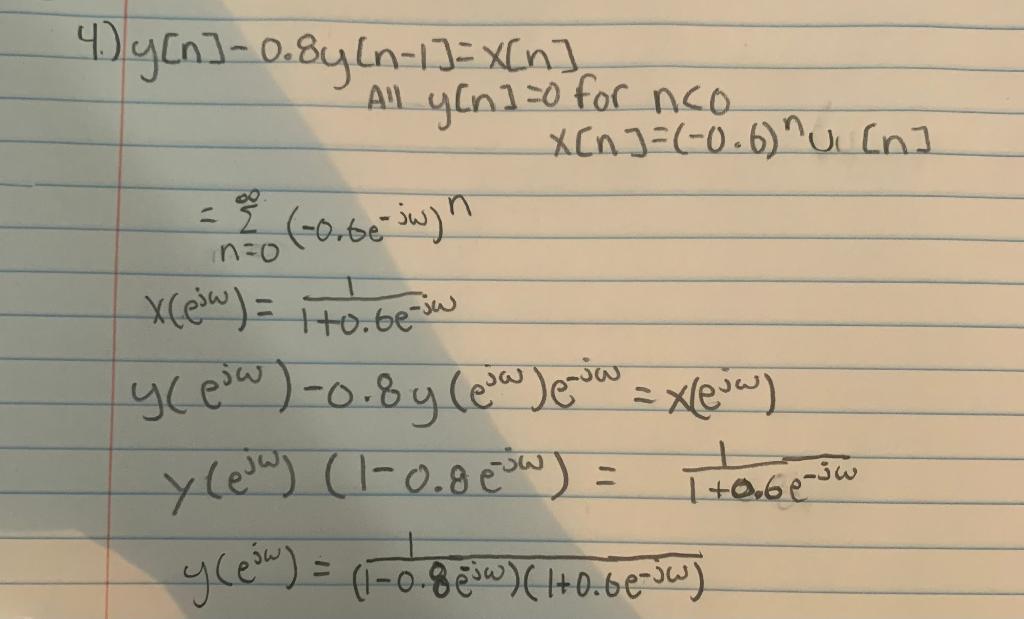 4.) y[n]-0.8y[n-1]=x[n]
All y[n]=0 for n<0
x[n]=(-0.6)^n u[n]
= ∑_{n=0}^{∞} (-0.6e^{-jω})^n
x(e^{jω}) = 1/(1+0.6e^{-jω})
y(e^{jω})-0.8y(e^{jω})e^{-jω} = x(e^{jω})
y(e^{jω}) (1-0.8e^{-jω}) = 1/(1+0.6e^{-jω})
y(e^{jω}) = 1/((1-0.8e^{-jω})(1+0.6e^{-jω}))